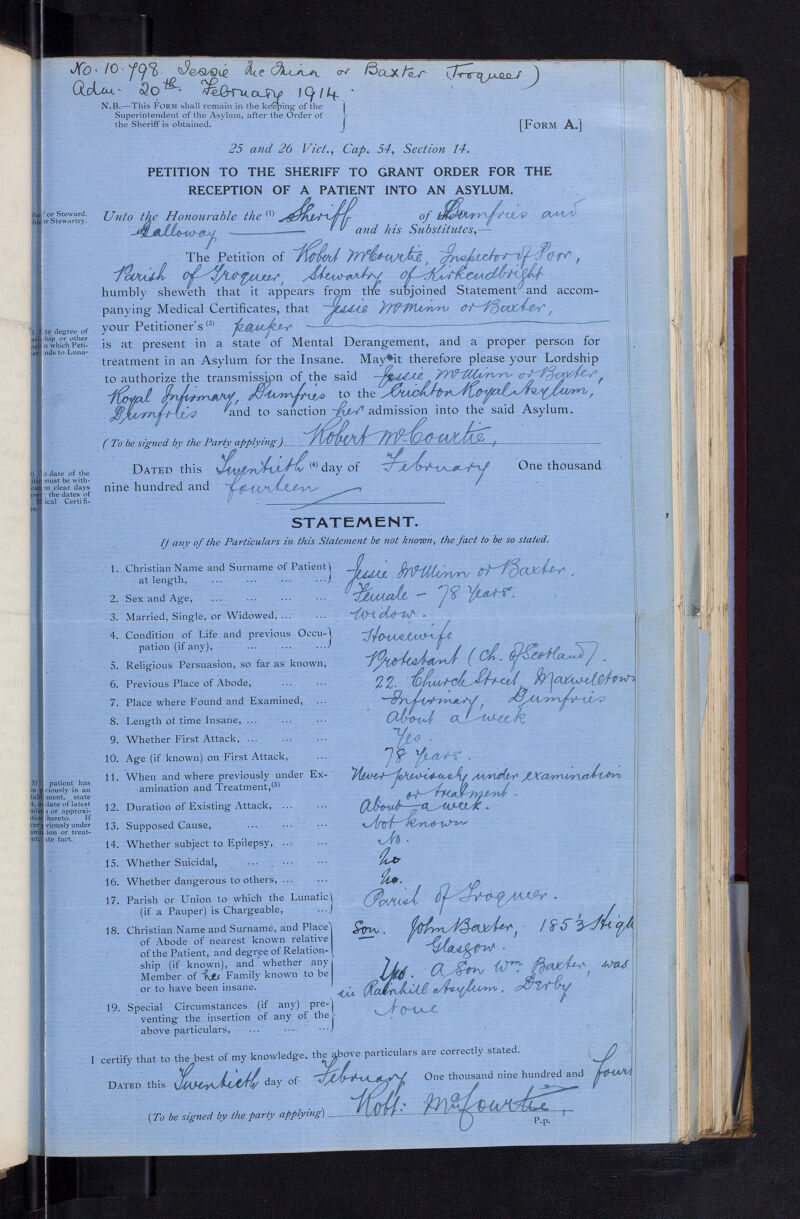 No. 10.798 Jessie McMinn or Baxter (Troqueer)
Adm. 20th. February 1914.
N.B.—This FORM shall remain in the keeping of the
Superintendent of the Asylum, after the Order of
the Sheriff is obtained.
[FORM A.]
25 and 26 Vict., Cap. 54, Section 14.
PETITION TO THE SHERIFF TO GRANT ORDER FOR THE
RECEPTION OF A PATIENT INTO AN ASYLUM.
or Steward.
or Stewartry.
Unto the Honourable the (1) Sheriff of Dumfries and
Galloway and his Substitutes,—
The Petition of Robert McCourtie, Inspector of Poor,
Parish of Troqueer, Stewartry of Kirkcudbright
humbly sheweth that it appears from the subjoined Statement and accom-
panying Medical Certificates, that Jessie McMinn or Baxter,
degree of
or other
which Peti-
to Luna-
your Petitioner's (3) pauper
is at present in a state of Mental Derangement, and a proper person for
treatment in an Asylum for the Insane. May it therefore please your Lordship
to authorize the transmission of the said Jessie McMinn or Baxter,
Royal Infirmary, Dumfries to the Crichton Royal Asylum,
Dumfries and to sanction her admission into the said Asylum.
(To be signed by the Party applying) Robert McCourtie,
date of the
must be with-
clear days
the dates of
Certifi-
DATED this Twentieth (4) day of February One thousand
nine hundred and fourteen
STATEMENT.
If any of the Particulars in this Statement be not known, the fact to be so stated.
1. Christian Name and Surname of Patient at length, ... Jessie McMinn or Baxter.
2. Sex and Age, ... Female - 78 Years.
3. Married, Single, or Widowed, ... Widow.
4. Condition of Life and previous Occu-
pation (if any), ... Housewife
5. Religious Persuasion, so far as known, Protestant (Ch. of Scotland).
6. Previous Place of Abode, ... 22. Church Street, Maxwelltown
7. Place where Found and Examined, ... Infirmary, Dumfries
8. Length of time Insane, ... About a week
9. Whether First Attack, ... Yes.
10. Age (if known) on First Attack, ... 78 Years.
11. When and where previously under Ex- Never previously under examination
amination and Treatment,(5) or treatment.
patient has
in an
state
date of latest
or approxi-
thereto. If
under
or treat-
fact.
12. Duration of Existing Attack, ... About a week.
13. Supposed Cause, ... Not known
14. Whether subject to Epilepsy, ... No.
15. Whether Suicidal, ... No
16. Whether dangerous to others, ... No.
17. Parish or Union to which the Lunatic
(if a Pauper) is Chargeable, ... Parish of Troqueer.
18. Christian Name and Surname, and Place Son. John Baxter, 1853 High
of Abode of nearest known relative Glasgow.
of the Patient, and degree of Relation-
ship (if known), and whether any Yes. A Son Wm. Baxter, was
Member of her Family known to be in Rainhill Asylum, Derby
or to have been insane.
19. Special Circumstances (if any) pre-
venting the insertion of any of the None
above particulars, ...
I certify that to the best of my knowledge, the above particulars are correctly stated.
DATED this Twentieth day of February One thousand nine hundred and four
(To be signed by the party applying) Robt: McCourtie,
P.p.